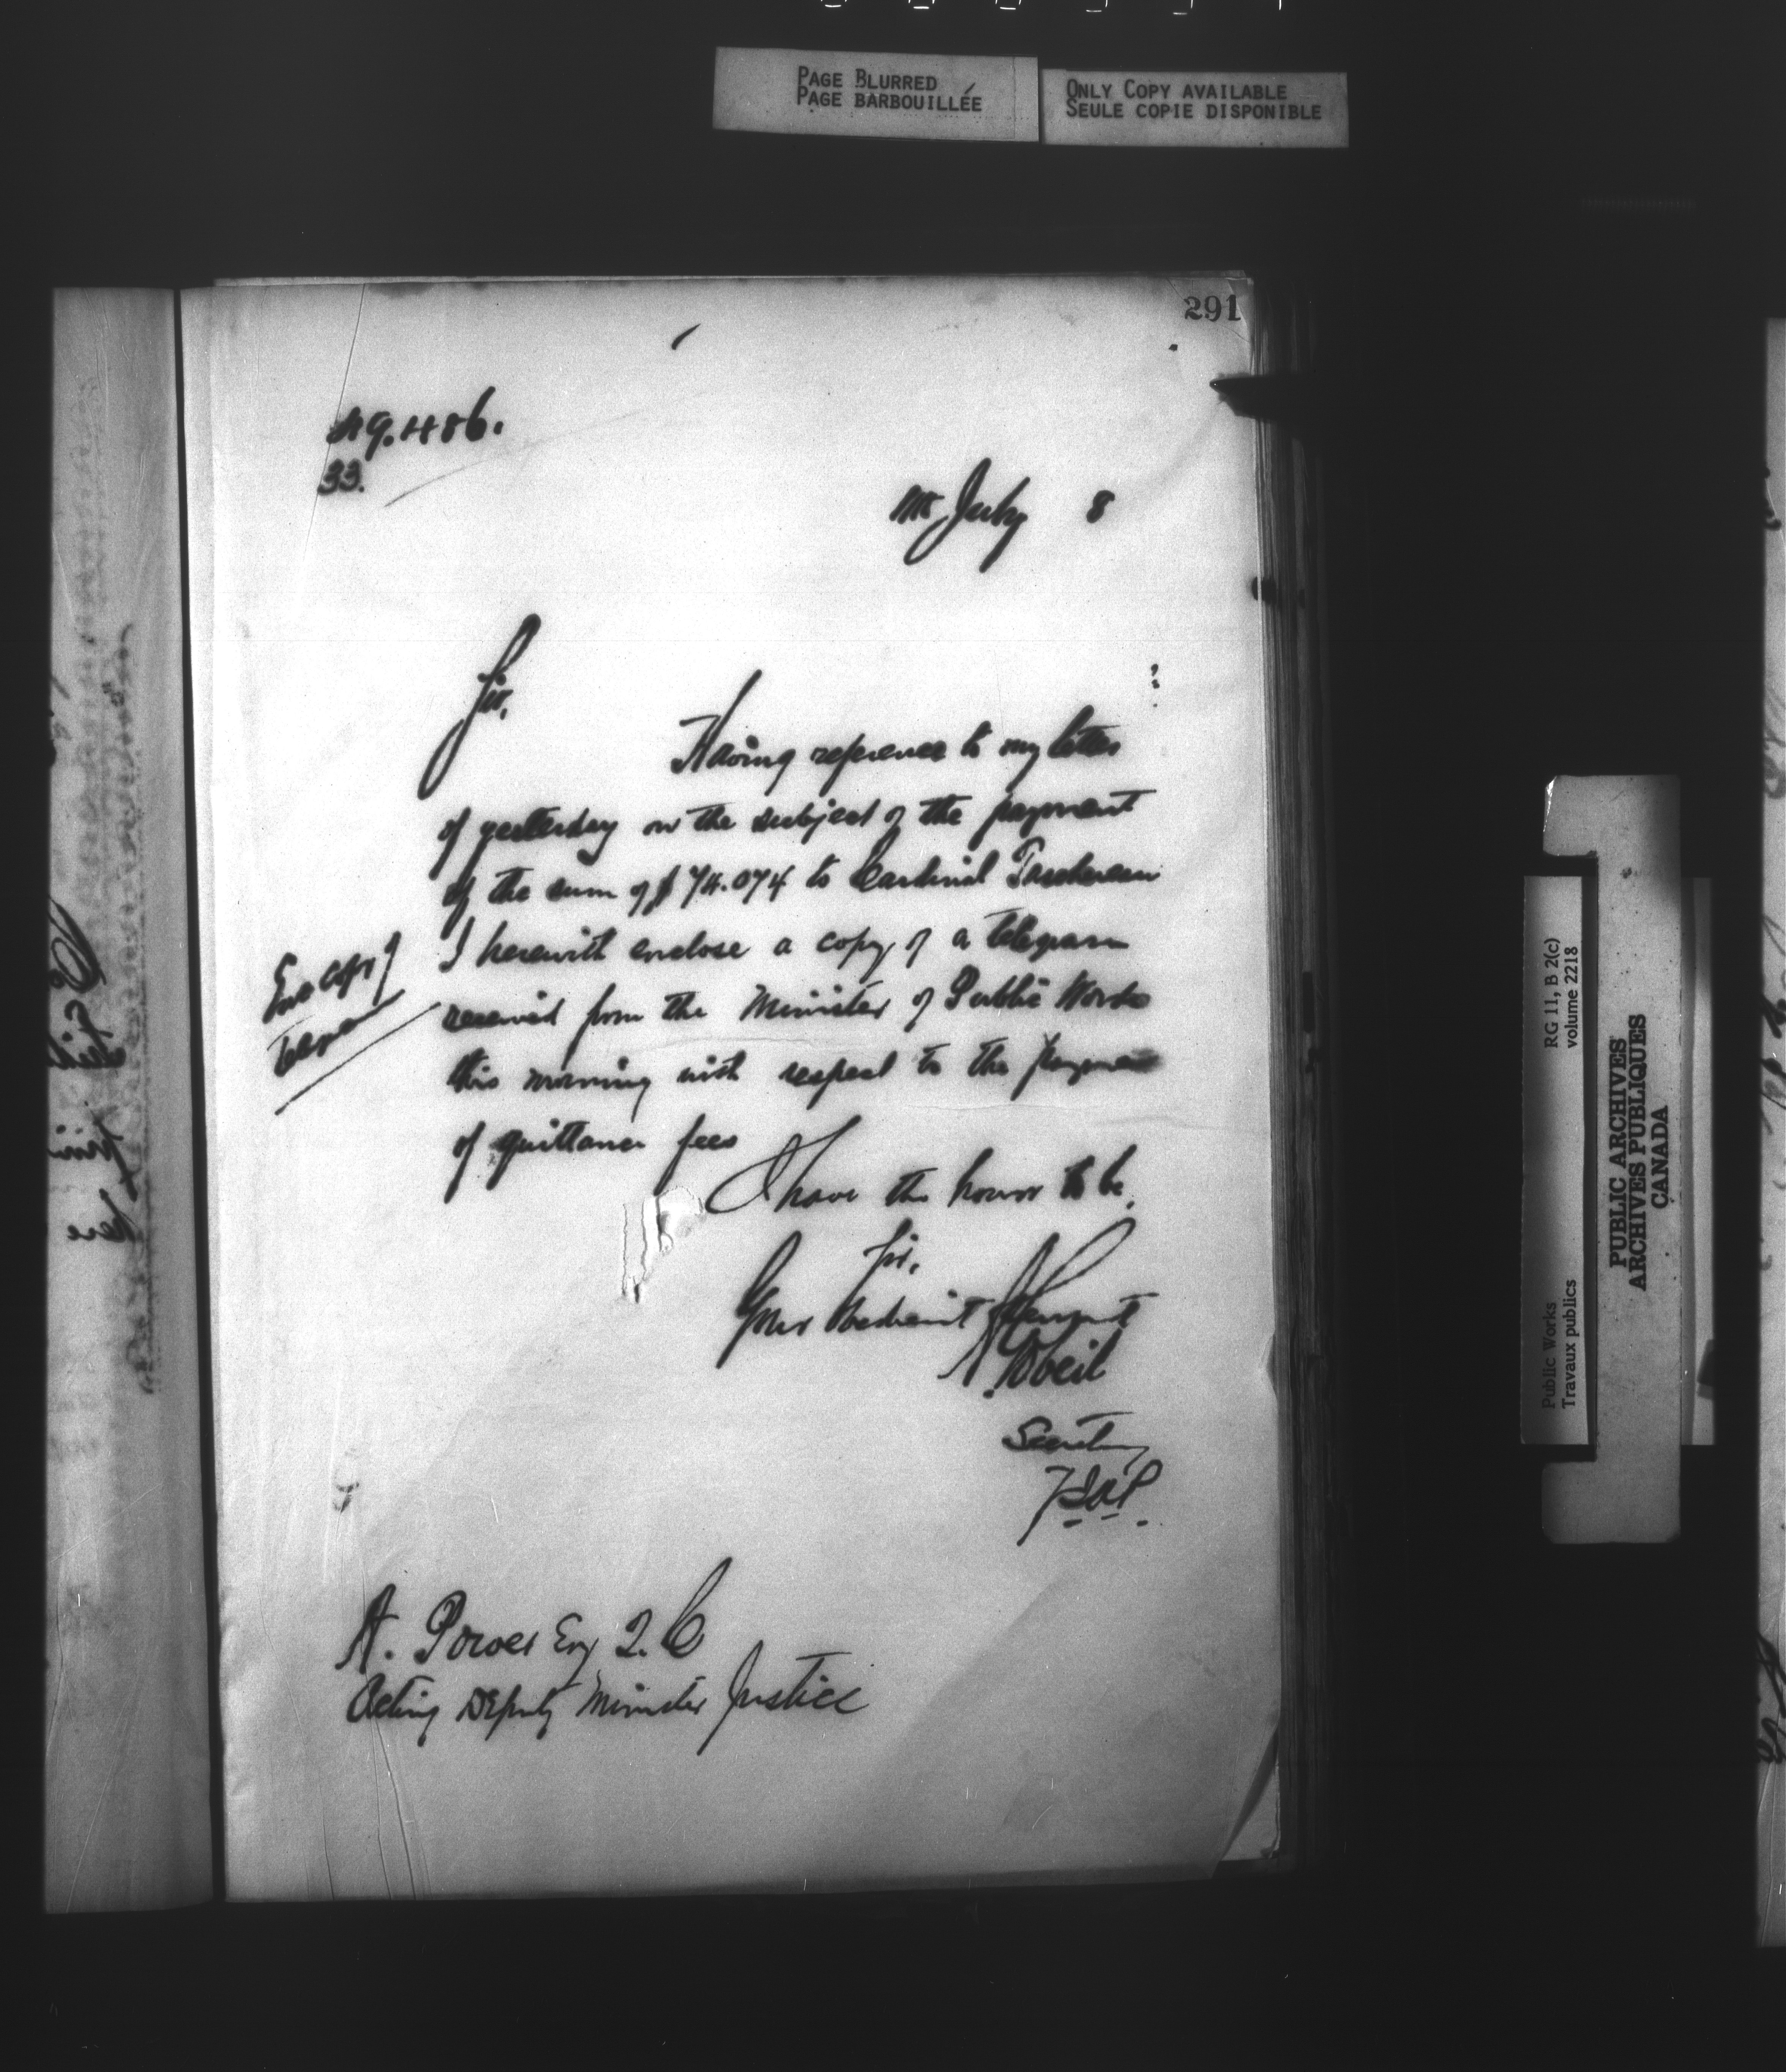 PAGE BLURRED
PAGE BARBOUILLÉE
ONLY COPY AVAILABLE
SEULE COPIE DISPONIBLE
291
33.
July 8
Sir,
Having reference to my letter
of yesterday on the subject of the payment
of the sum of $ 74.074 to Cardinal Taschereau
I herewith enclose a copy of a telegram
received from the Minister of Public Works
this morning with respect to the payment
of quittance fees
Enc copy
telegram
I have the honor to be,
Sir,
Your Obedient Servant
A. Gobeil
Secretary
A. Power Esq Q. C
Acting Deputy Minister Justice
RG 11, B 2(c)
volume 2218
Public Works
Travaux publics
PUBLIC ARCHIVES
ARCHIVES PUBLIQUES
CANADA